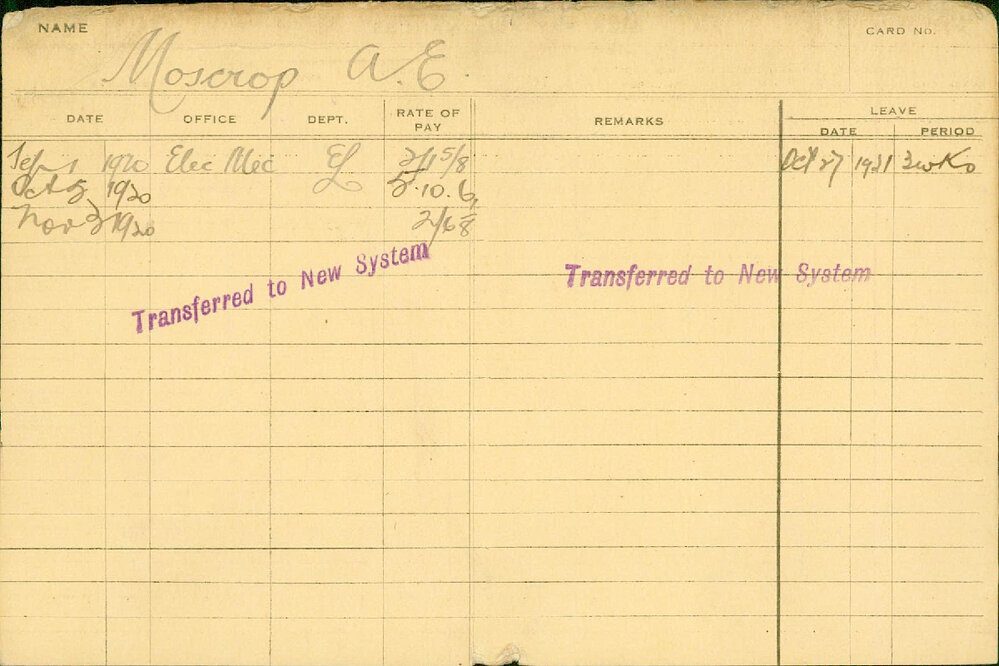 NAME Moscrop A.E. CARD NO.
DATE OFFICE DEPT. RATE OF PAY REMARKS LEAVE
DATE PERIOD
Sep 1 1920 Elec Mec EL 2/1 5/8 Oct 27 1921 3 wks
Oct 5 1920 5.10.6
Nov 3 1920 2/6 5/8
Transferred to New System
Transferred to New System